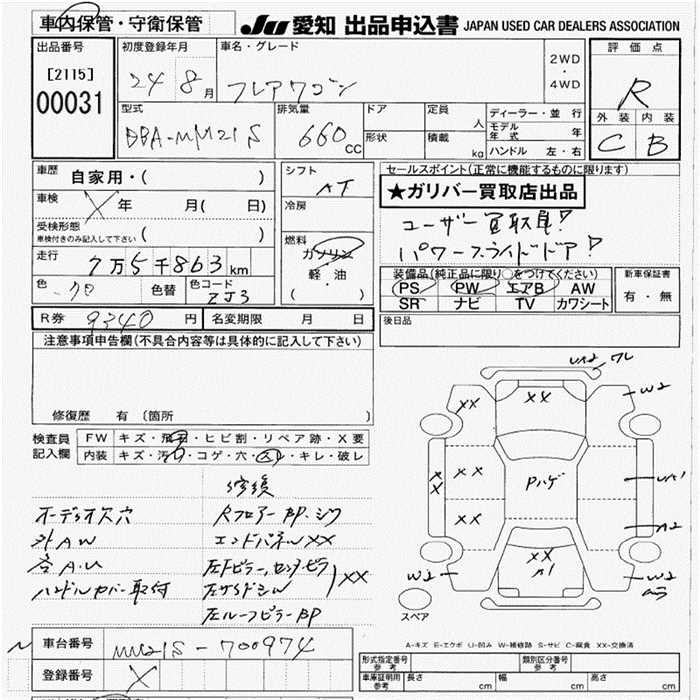 車内保管・守衛保管
JU 愛知 出品申込書 JAPAN USED CAR DEALERS ASSOCIATION
出品番号
[2115]
00031
初度登録年月
24 8月
車名・グレード
フレアワゴン
2WD
・
4WD
評価点
R
外装 内装
C B
型式
DBA-MM21S
排気量
660 CC
ドア
形状
定員
人
積載
kg
ディーラー・並行
モデル年式 年
ハンドル 左・右
車歴
自家用・( )
車検
年 月( 日)
受検形態
車検付きのみ記入して下さい ( )
走行
7万5千863km
色
クロ
色替
色コード
ZJ3
シフト
AT
冷房
燃料
ガソリン
軽・油
( )
セールスポイント(正常に機能するものに限ります)
★ガリバー買取店出品
ユーザー買取車!
パワースライドドア!
装備品(純正品に限り○をつけてください)
PS PW エアB AW
SR ナビ TV カワシート
新車保証書
有・無
後日品
R券 9340円
名変期限 月 日
注意事項申告欄(不具合内容等は具体的に記入して下さい)
修復歴 有 (箇所 )
検査員
記入欄
FW キズ・飛石・ヒビ割・リペア跡・X要
内装 キズ・汚れ・コゲ・穴・スレ・キレ・破レ
修復
オーディオ欠穴
外AW
ハンドルカバー取付
RフロアーBP・シワ
エンドパネルXX
XX
左ルーフピラーBP
車台番号
MM21S-700974
登録番号
W2
XX
XX
W2
XX
XX
XX
Pハゲ
XX
A2
XX
A1
W2
W2
スペア
A-キズ E-エクボ U-凹み W-補修跡 S-サビ C-腐食 XX-交換済
形式指定番号
参考
類別区分番号
参考
車庫証明用
参考
長さ cm
幅 cm
高さ cm